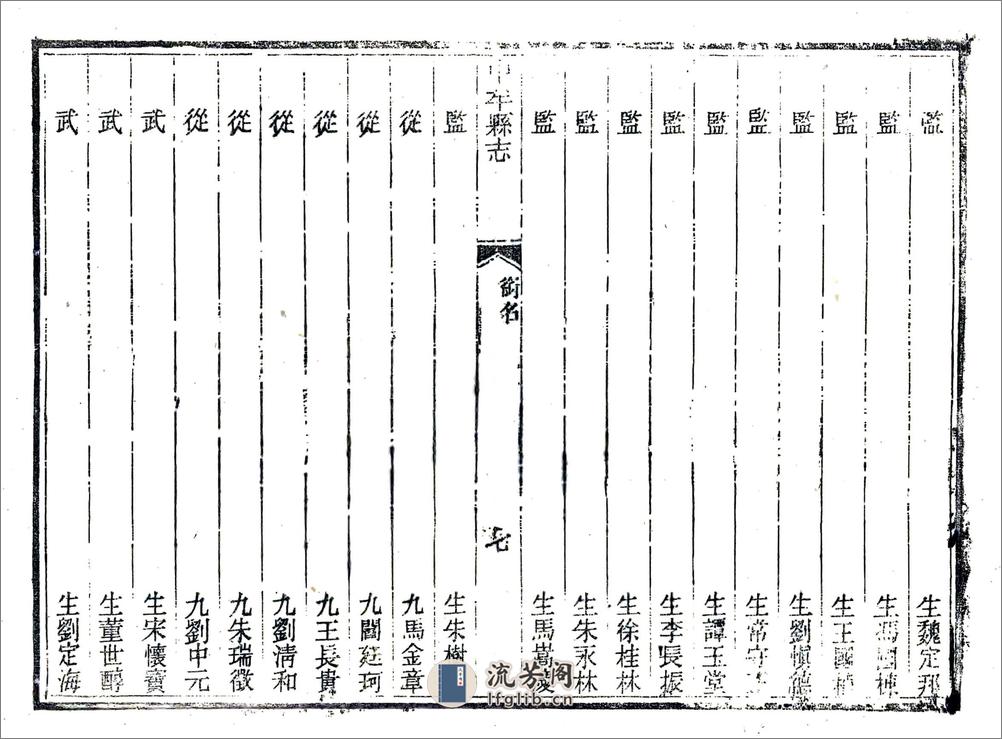 監生魏定邦
監生馮國棟
監生王國楨
監生劉慎德
監生常守
監生譚玉堂
監生李長振
監生徐桂林
監生朱永林
監生馬嵩凌
中牟縣志
銜名
七
監生朱樹
從九馬金章
從九閻廷珂
從九王長貴
從九劉清和
從九朱瑞徵
從九劉中元
武生宋懷寶
武生董世醇
武生劉定海
流芳阁
lfglib.cn